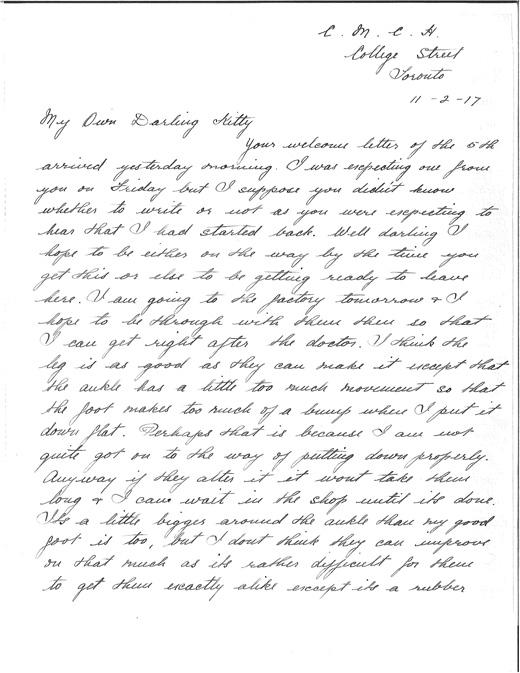 C. M. C. H.
College Street
Toronto
11-2-17
My Own Darling Kitty
Your welcome letter of the 5th
arrived yesterday morning. I was expecting one from
you on Friday but I suppose you didn't know
whether to write or not as you were expecting to
hear that I had started back. Well darling I
hope to be either on the way by the time you
get this or else to be getting ready to leave
here. I am going to the factory tomorrow & I
hope to be through with them then so that
I can get right after the doctor. I think the
leg is as good as they can make it except that
the ankle has a little too much movement so that
the foot makes too much of a bump where I put it
down flat. Perhaps that is because I am not
quite got on to the way of putting down properly.
Anyway if they alter it it wont take them
long & I can wait in the shop until its done.
Its a little bigger around the ankle than my good
foot is too, but I dont think they can improve
on that much as its rather difficult for them
to get them exactly alike except its a rubber